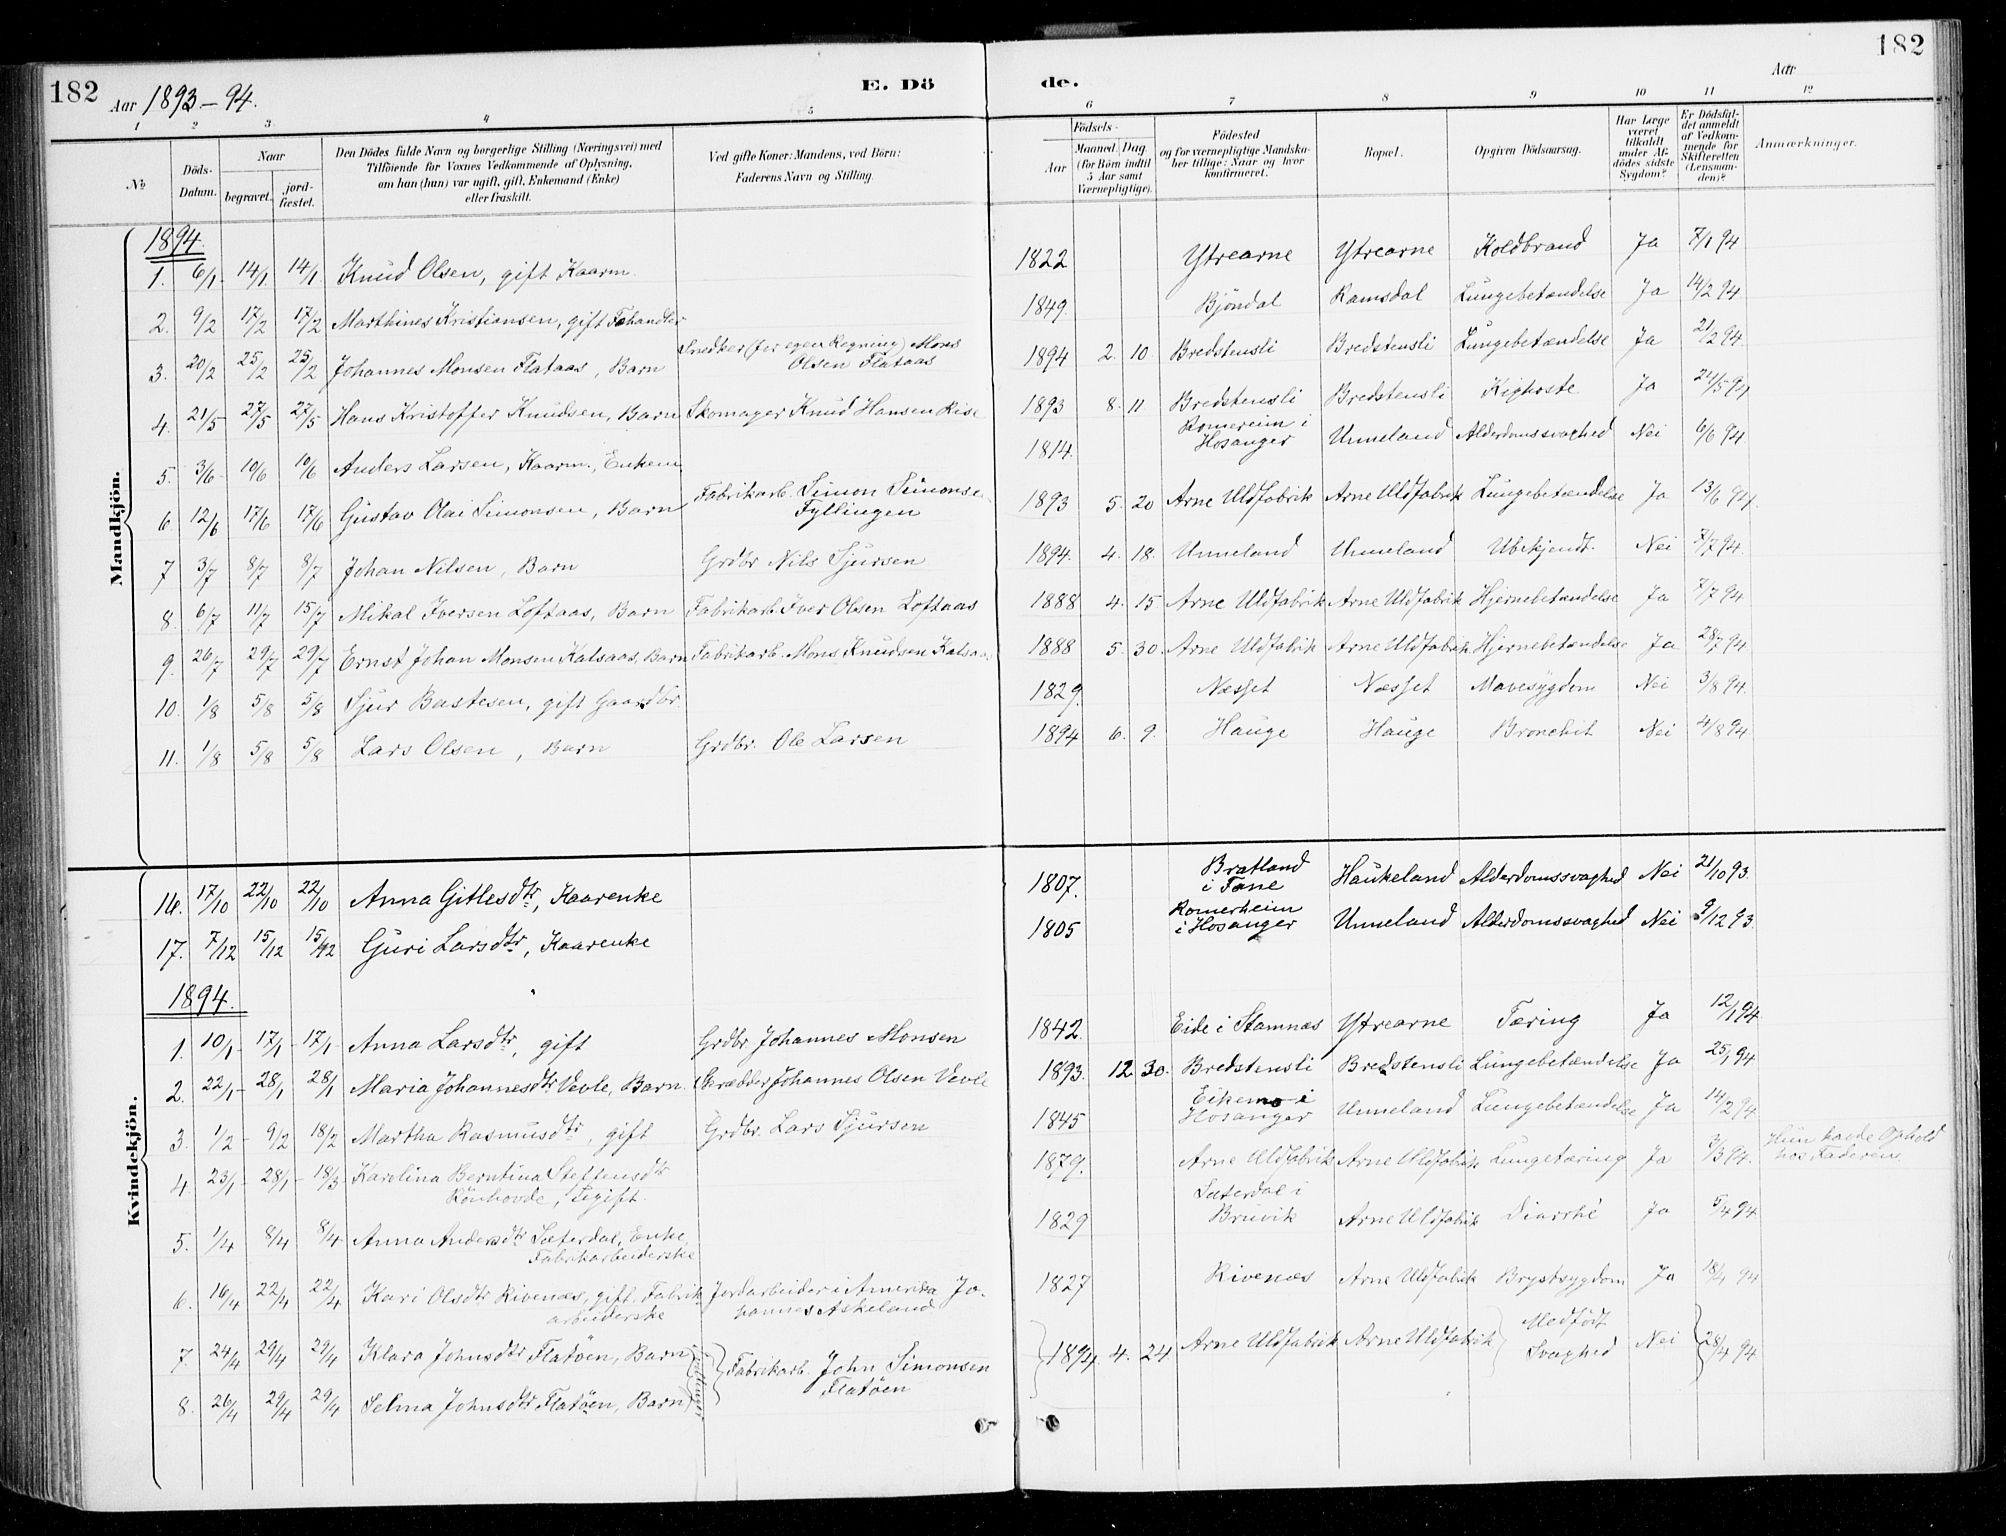 182
Aar 1893-94.
E. Dö
de.
Aar
182
1 2 3 4 5 6 7 8 9 10 11 12
№
Döds-Datum.
Naar
begravet.
jord-fæstet.
Den Dödes fulde Navn og borgerlige Stilling (Næringsvei) med
Tilföiende for Voxnes Vedkommende af Oplysning,
om han (hun) var ugift, gift, Enkemand (Enke)
eller fraskilt.
Ved gifte Koner: Mandens, ved Börn:
Faderens Navn og Stilling.
Födsels-
Aar
Maaned. Dag
(for Börn indtil
5 Aar samt
Værnepligtige).
Födested
og for værnepligtige Mandska-
ber tillige: Naar og hvor
konfirmeret.
Bopæl.
Opgiven Dödsaarsag.
Har Læge
været
tilkaldt
under Af-
dödes sidste
Sygdom?
Er Dödsfal-
det anmeldt
af Vedkom-
mende for
Skifteretten
(Lensman-
den)?
Anmærkninger.
Mandkjön.
1894.
1. 6/1 14/1 14/1 Knud Olsen, gift Kaarm. 1822 Ytrearne Ytrearne Koldbrand Ja 7/1 94
2. 9/2 17/2 17/2 Marthines Kristiansen, gift Fehandler 1849. Bjöndal Ramsdal Lungebetændelse Ja 14/2 94
3. 20/2 25/2 25/2 Johannes Monsen Flataas, Barn Snedker (for egen Regning) Mons Olsen Flataas 1894 2. 10. Bredstensli Bredstensli Lungebetændelse Ja 21/2 94.
4. 21/5 27/5 27/5 Hans Kristoffer Knudsen, Barn Skomager Knud Hansen Rise 1893 8. 11 Bredstensli Bredstensli Kighoste Ja 24/5 94
5. 3/6 10/6 10/6 Anders Larsen, Kaarm., Enkem. 1814. Romereim i Hosanger Unneland Alderdomssvaghed Nei 6/6 94
6 12/6 17/6 17/6 Gustav Olai Simonsen, Barn Fabrikarb. Simon Simonsen Fyllingen 1893 5. 20 Arne Uldfabrik Arne Uldfabrik Lungebetændelse Ja 13/6 94.
7 3/7 8/7 8/7 Johan Nilsen, Barn Grdbr Nils Sjursen 1894. 4. 18. Unneland Unneland Ubekjendt. Nei 7/7 94.
8. 6/7 11/7 15/7 Mikal Iversen Loftaas, Barn Fabrikarb. Iver Olsen Loftaas 1888 4. 15 Arne Uldfabrik Arne Uldfabrik Hjernebetændelse Ja 7/7 94
9. 26/7 29/7 29/7 Ernst Johan Monsen Kalsaas, Barn Fabrikarb. Mons Knudsen Kalsaas 1888 5. 30. Arne Uldfabrik Arne Uldfabrik Hjernebetændelse Ja 28/7 94
10. 1/8 5/8 5/8 Sjur Bastesen, gift Gaardbr. 1829. Næsset Næsset Mavesygdom Nei 3/8 94.
11. 1/8 5/8 5/8 Lars Olsen, Barn Grdbr. Ole Larsen 1894 6. 9. Hauge Hauge Bronchit Nei 4/8 94
Kvindekjön.
16. 17/10 22/10 22/10 Anna Gitlesdtr, Kaarenke 1807. Bratland i Fane Haukeland Alderdomssvaghed Nei 21/10 93.
17. 7/12 15/12 15/12 Guri Larsdtr, Kaarenke 1805 Romerheim i Hosanger Unneland Alderdomssvaghed Nei 9/12 93.
1894.
1. 10/1 17/1 17/1 Anna Larsdtr, gift Grdbr Johannes Monsen 1842. Eide i Stamnæs Ytrearne Tæring Ja 12/1 94
2. 22/1 28/1 28/1 Maria Johannesdtr Vevle, Barn Skrædder Johannes Olsen Vevle 1893. 12 30. Bredstensli Bredstensli Lungebetændelse Ja 25/1 94
3. 1/2 9/2 18/2 Martha Rasmusdtr, gift Grdbr. Lars Sjursen 1845 Eikemo i Hosanger Unneland Lungebetændelse Ja 14/2 94
4. 23/1 28/1 18/3 Karolina Berntina Steffensdtr Rönhovde, Ugift. 1879. Arne Uldfabrik Arne Uldfabrik Lungetæring Ja 3/3 94. Hun havde Ophold hos Faderen.
5. 1/4 8/4 8/4 Anna Andersdtr Sæterdal, Enke, Fabrikarbeiderske 1829 Sæterdal i Bruvik Arne Uldfabrik Diarrhé Ja 5/4 94
6. 16/4 22/4 22/4 Kari Olsdtr Rivenæs, gift, Fabrikarbeiderske Jordarbeider i Amerika Johannes Askeland 1827 Rivenæs Arne Uldfabrik Brystsygdom Ja 18/4 94
7. 24/4 29/4 29/4 Klara Johnsdtr Flatöen, Barn Tvillinger Fabrikarb. John Simonsen Flatöen 1894 4. 24 Arne Uldfabrik Arne Uldfabrik Medfödt Svaghed Nei 28/4 94
8. 26/4 29/4 29/4 Selma Johnsdtr Flatöen, Barn